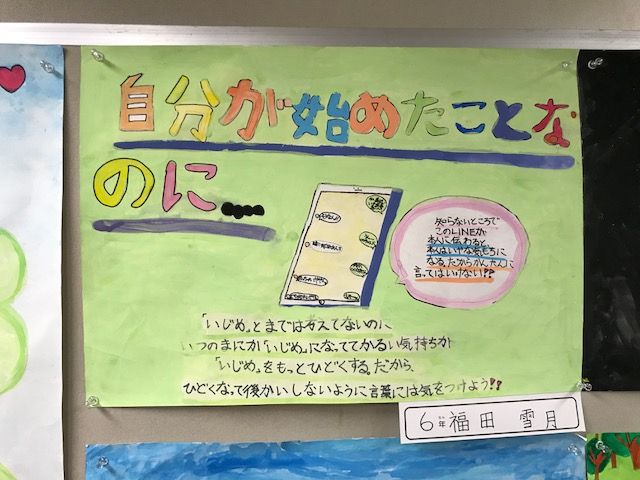 自分が始めたことな
のに…
知らないところで
このLINEが
本人に伝わると
本人はいやな気もちに
なる。だからかんたんに
言ってはいけない!?
「いじめ」とまでは考えてないのに
いつのまにか「いじめ」になっててかるい気持ちが
「いじめ」をもっとひどくする。だから、
ひどくなって後かいしないように言葉には気をつけよう!?
6年 福田 雪月